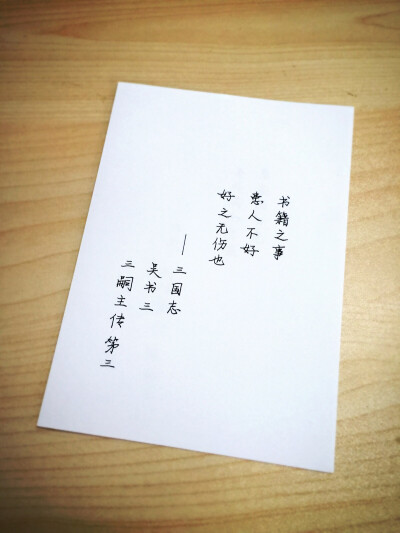 书籍之事
患人不好
好之无伤也
——三国志
吴书三
三嗣主传第三